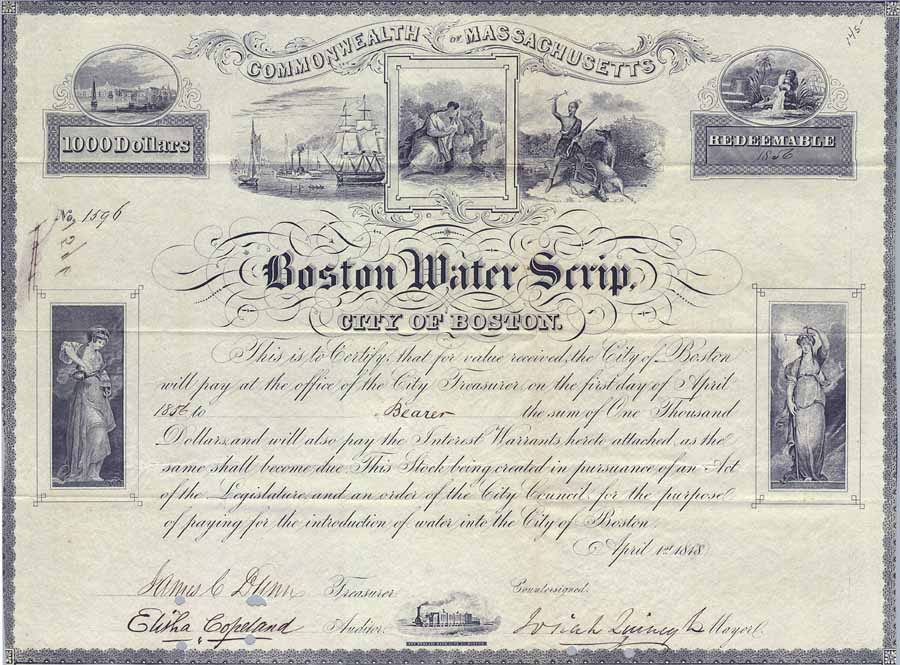 145-
COMMONWEALTH OF MASSACHUSETTS
1000 Dollars
REDEEMABLE
1856
No. 1596
Boston Water Scrip.
CITY OF BOSTON.
This is to Certify, that for value received, the City of Boston
will pay at the office of the City Treasurer on the first day of April
1856 to Bearer the sum of One Thousand
Dollars, and will also pay the Interest Warrants hereto attached, as the
same shall become due. This Stock being created in pursuance of an Act
of the Legislature, and an order of the City Council, for the purpose
of paying for the introduction of water into the City of Boston.
April 1st 1848
James C Dunn Treasurer
Countersigned.
Elisha Copeland Auditor
Josiah Quincy Jr Mayor